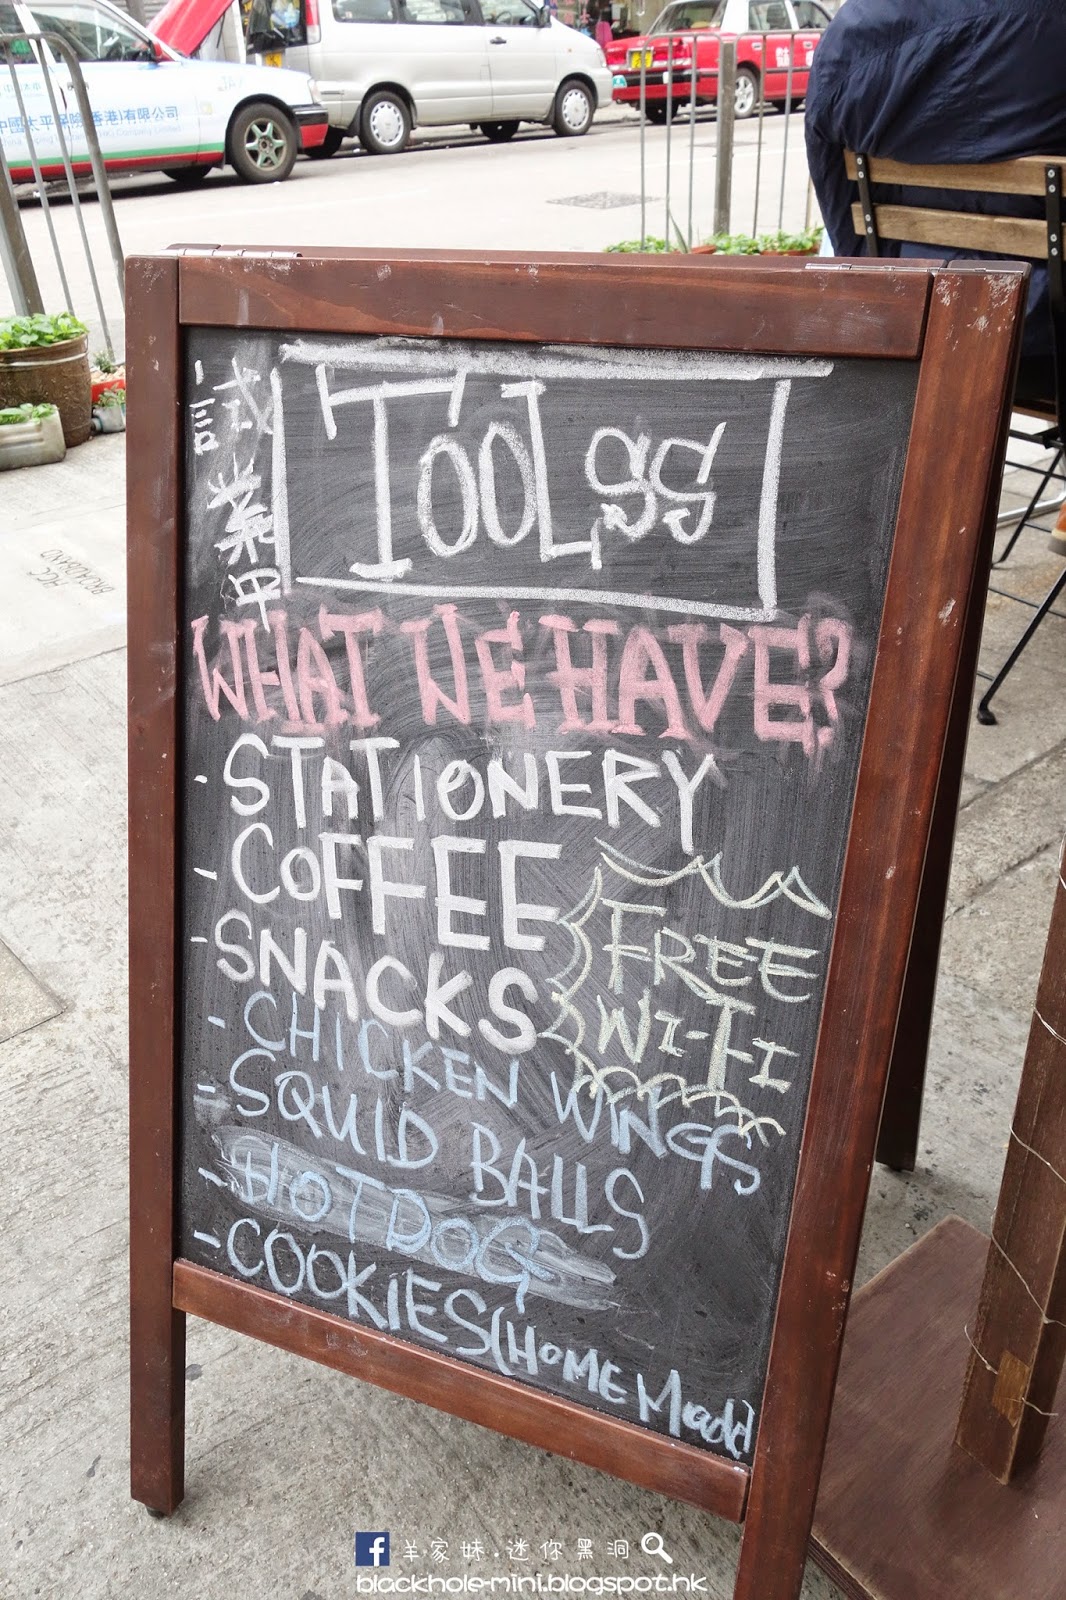 中國太平保險(香港)有限公司
試業中
TOOLss
WHAT WE HAVE?
- STATIONERY
- COFFEE
- SNACKS
FREE
WI-FI
- CHICKEN WINGS
= SQUID BALLS
- HOTDOG
- COOKIES (HOME Made)
HGC
BROADBAND
羊家妹.迷你黑洞
blackhole-mini.blogspot.hk